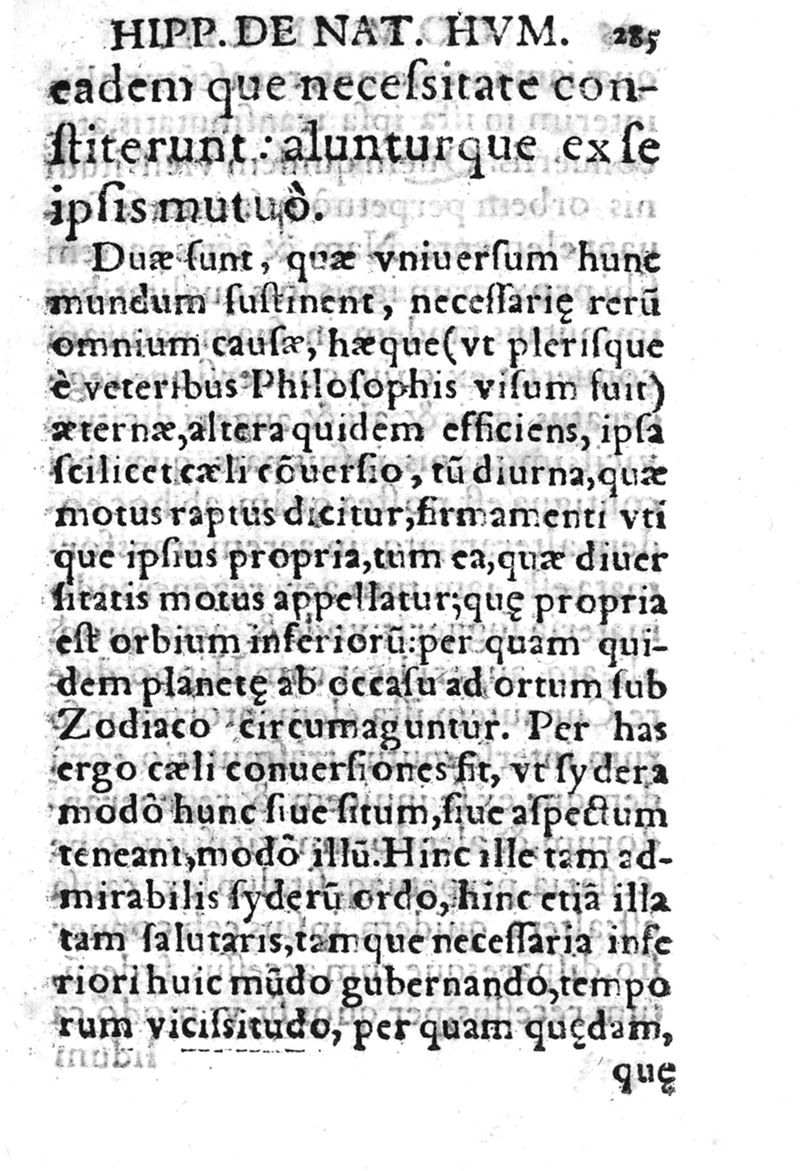 HIPP. DE NAT. HVM. 285
eadem que neceſsitate con-
ſtiterunt: alunturque ex ſe
ipſis mutuò.
Duæ ſunt, quæ vniuerſum hunc
mundum ſuſtinent, neceſſarię rerū
omnium cauſæ, hæque (vt pleriſque
è veteribus Philoſophis viſum fuit)
æternæ, altera quidem efficiens, ipſa
ſcilicet cæli cōuerſio, tū diurna, quæ
motus raptus dicitur, firmamenti vti
que ipſius propria, tum ea, quæ diuer
ſitatis motus appellatur; quę propria
eſt orbium inferiorū: per quam qui-
dem planetę ab occaſu ad ortum ſub
Zodiaco circumaguntur. Per has
ergo cæli conuerſiones fit, vt ſydera
modò hunc ſiue ſitum, ſiue aſpectum
teneant, modò illū. Hinc ille tam ad-
mirabilis ſyderū ordo, hinc etiā illa
tam ſalutaris, tamque neceſſaria infe
riori huic mūdo gubernando, tempo
rum viciſsitudo, per quam quędam,
quę